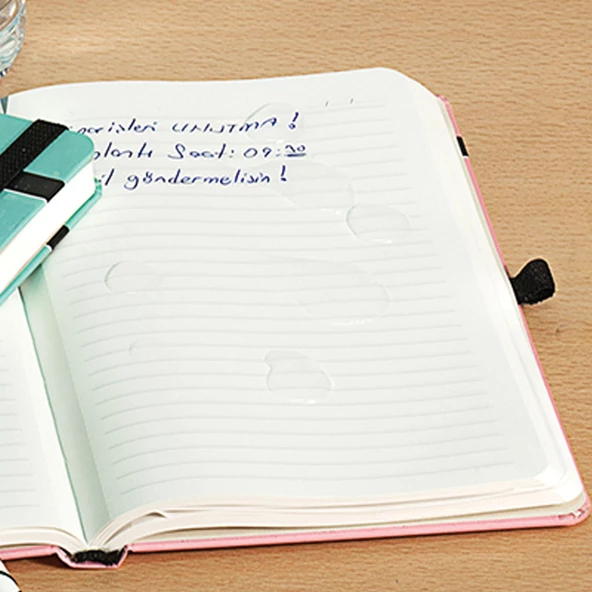 parişleri UNUTMA !
plantı Saat: 09:30
ail göndermelisin !